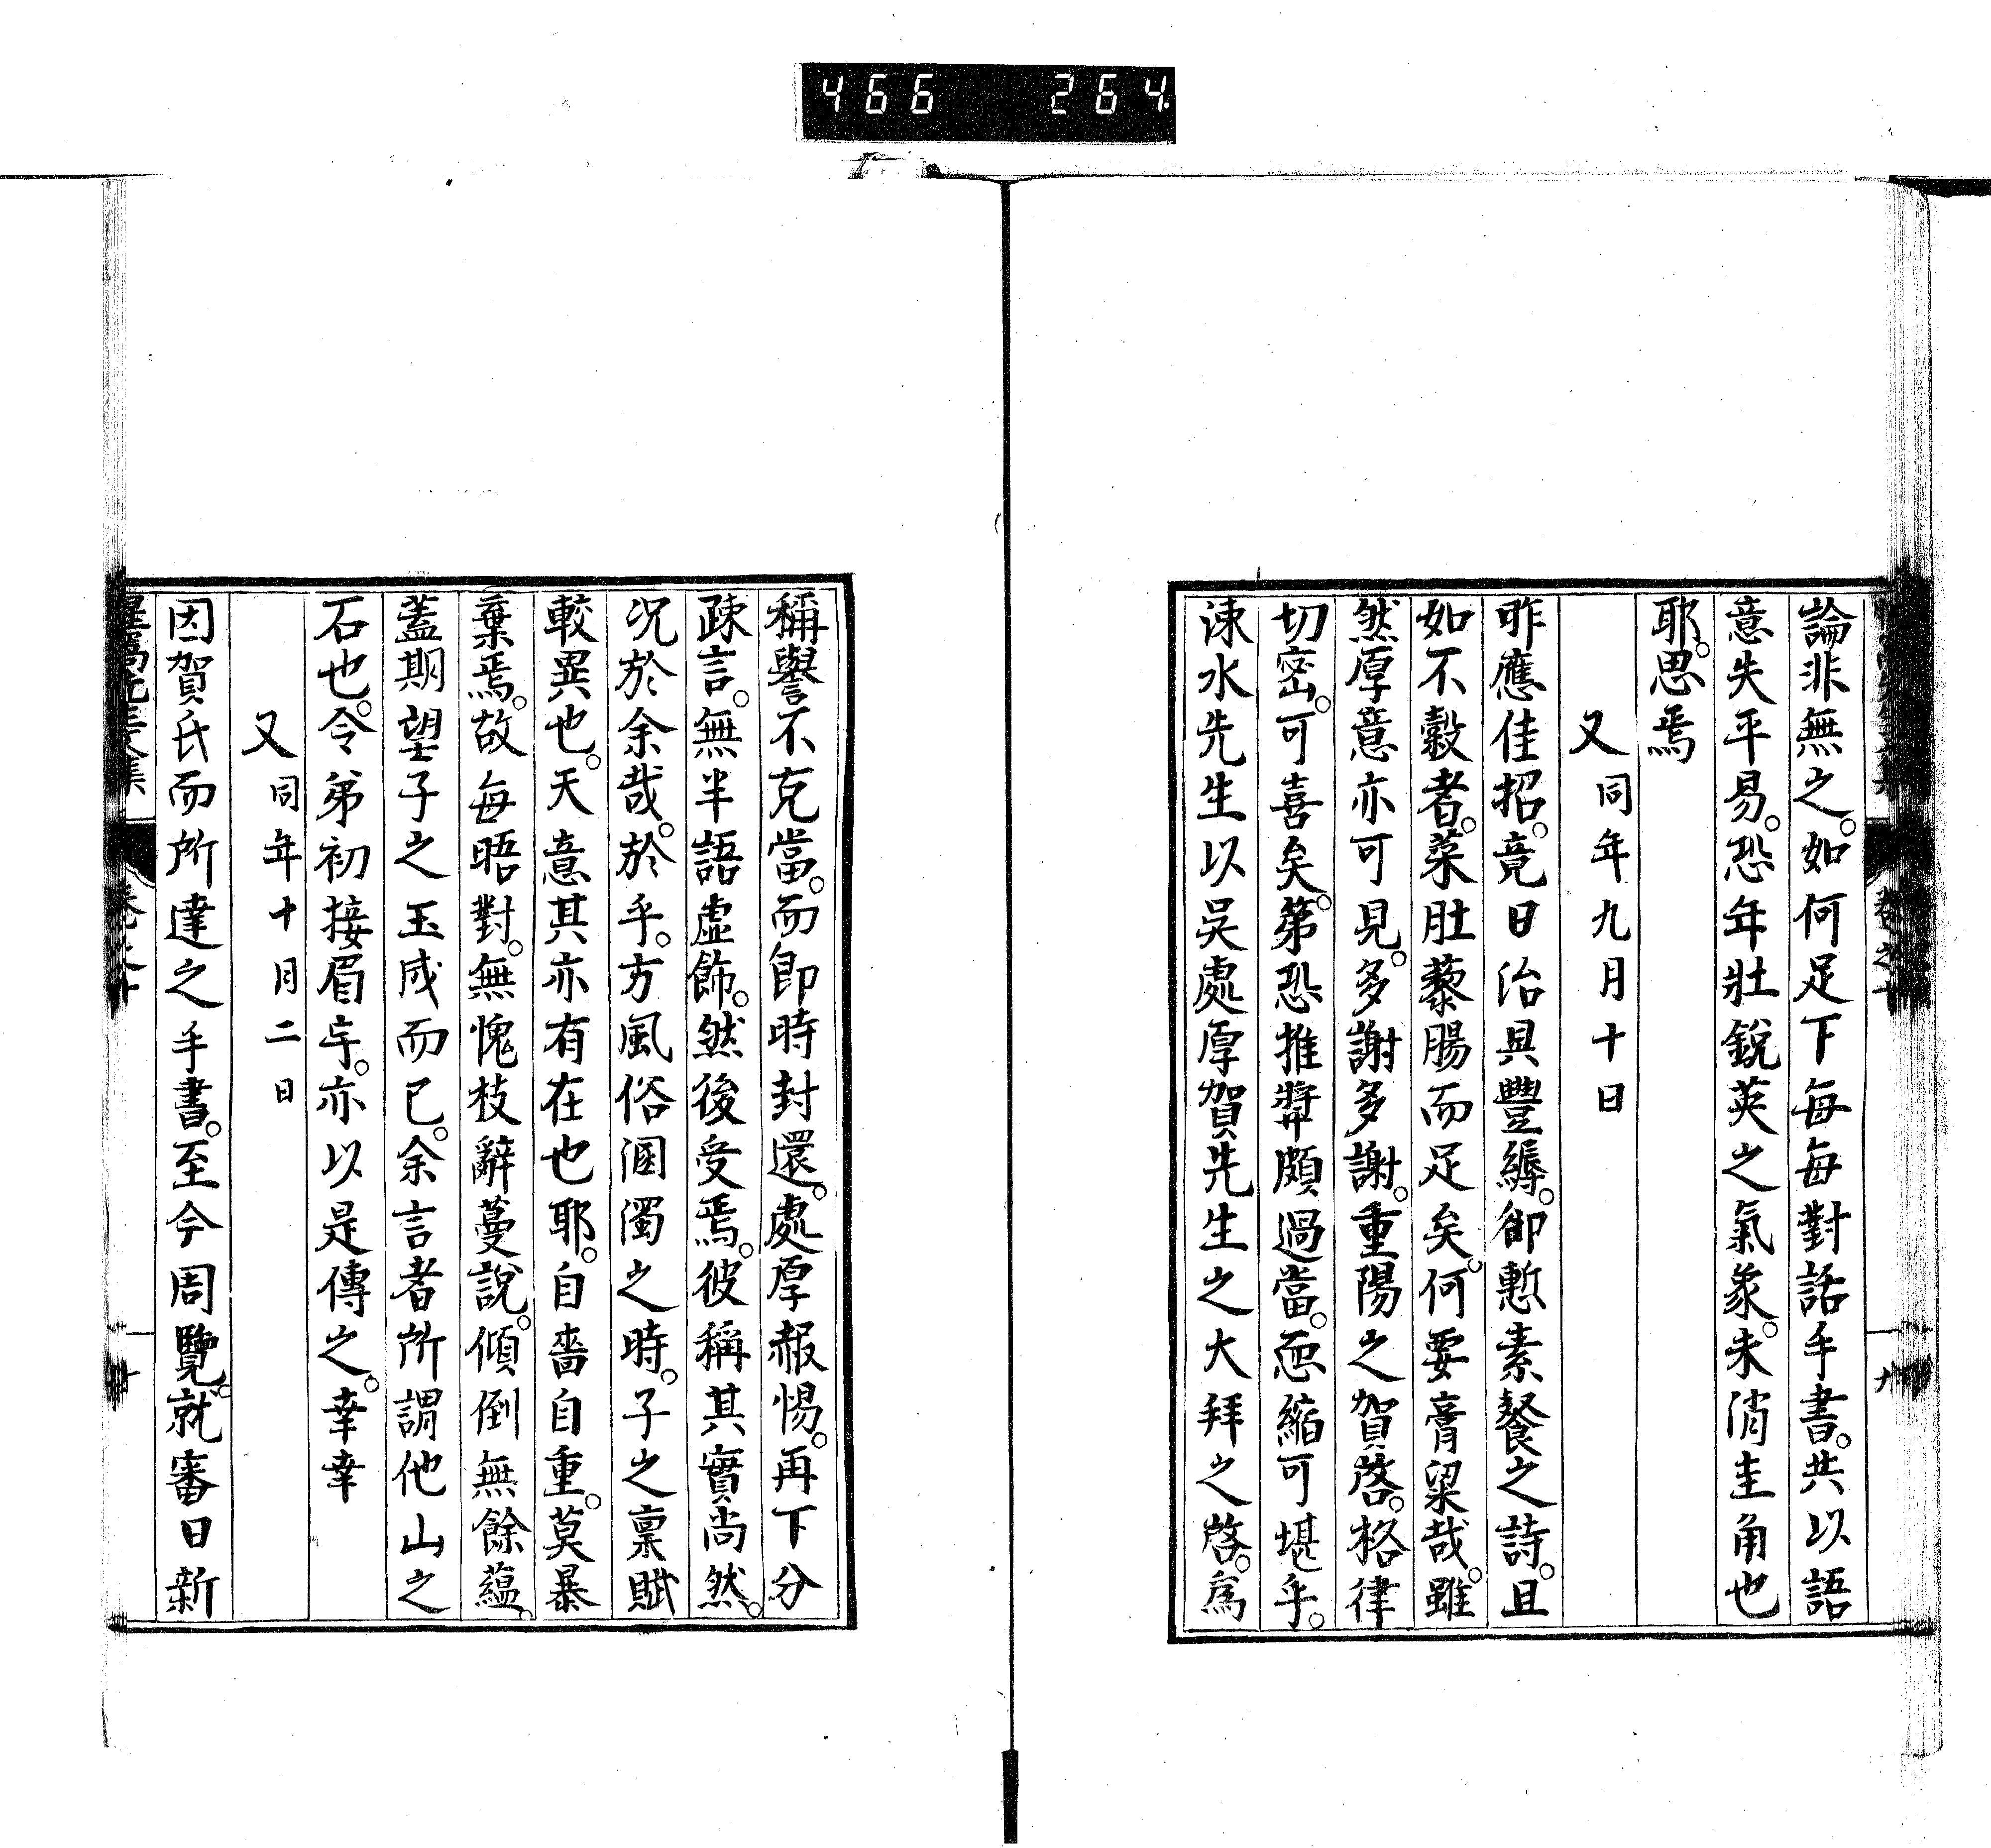 466 264
論非無之。如何足下每每對話手書。共以語
意失平易。恐年壯銳英之氣象。未消圭角也
耶。思焉
又 同年九月十日
昨應佳招。竟日治具豐縟。卻慙素餐之詩。且
如不穀者。菜肚藜腸而足矣。何要膏粱哉。雖
然厚意亦可見。多謝多謝。重陽之賀啓。格律
切密。可喜矣。第恐推奬頗過當。恧縮可堪乎。
涑水先生以吳處厚賀先生之大拜之啓。爲
稱譽不克當。而卽時封還。處厚赧惕。再下分
疎言。無半語虛飾。然後受焉。彼稱其實尚然。
况於余哉。於乎。方風俗溷濁之時。子之稟賦
較異也。天意其亦有在也耶。自嗇自重。莫暴
棄焉。故每晤對。無愧枝辭蔓說。傾倒無餘蘊。
蓋期望子之玉成而已。余言者所謂他山之
石也。令弟初接眉宇。亦以是傳之。幸幸
又 同年十月二日
因賀氏而所達之手書。至今周覽。就審日新